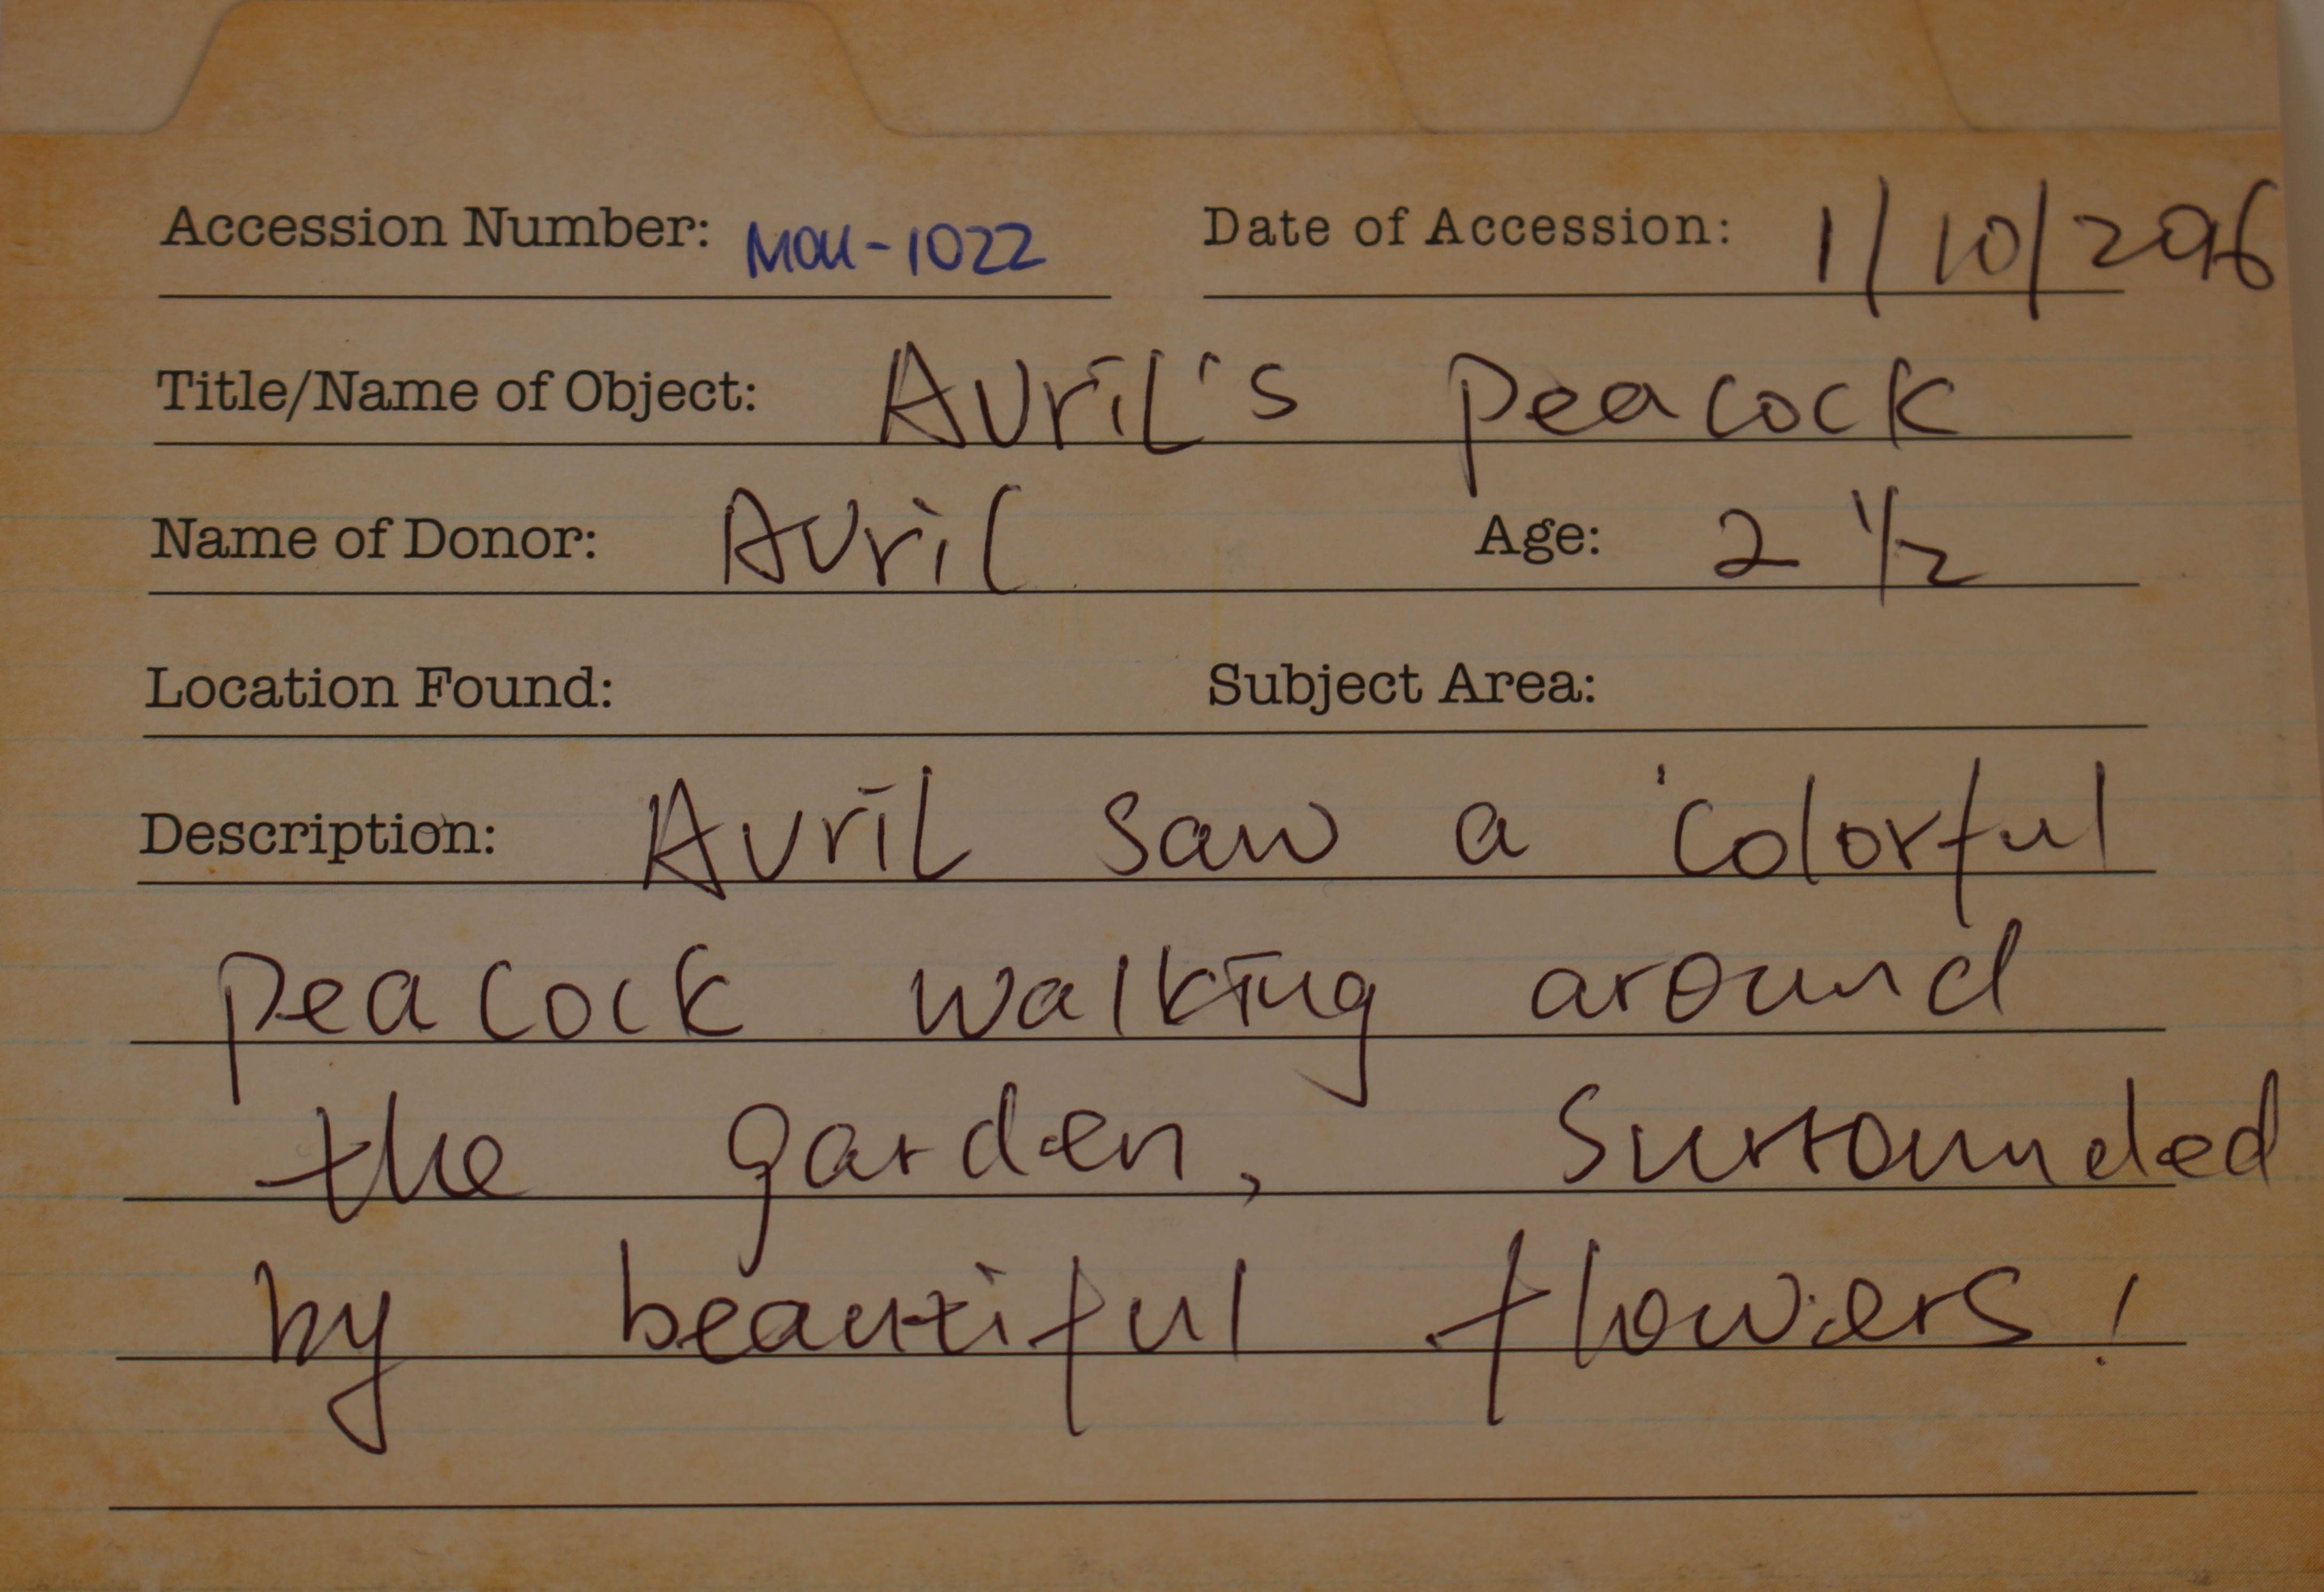 Accession Number: MOU-1022 Date of Accession: 1/10/2016
Title/Name of Object: Avril's peacock
Name of Donor: Avril Age: 2 1/2
Location Found: Subject Area:
Description: Avril saw a colorful
peacock walking around
the garden, surrounded
by beautiful flowers!